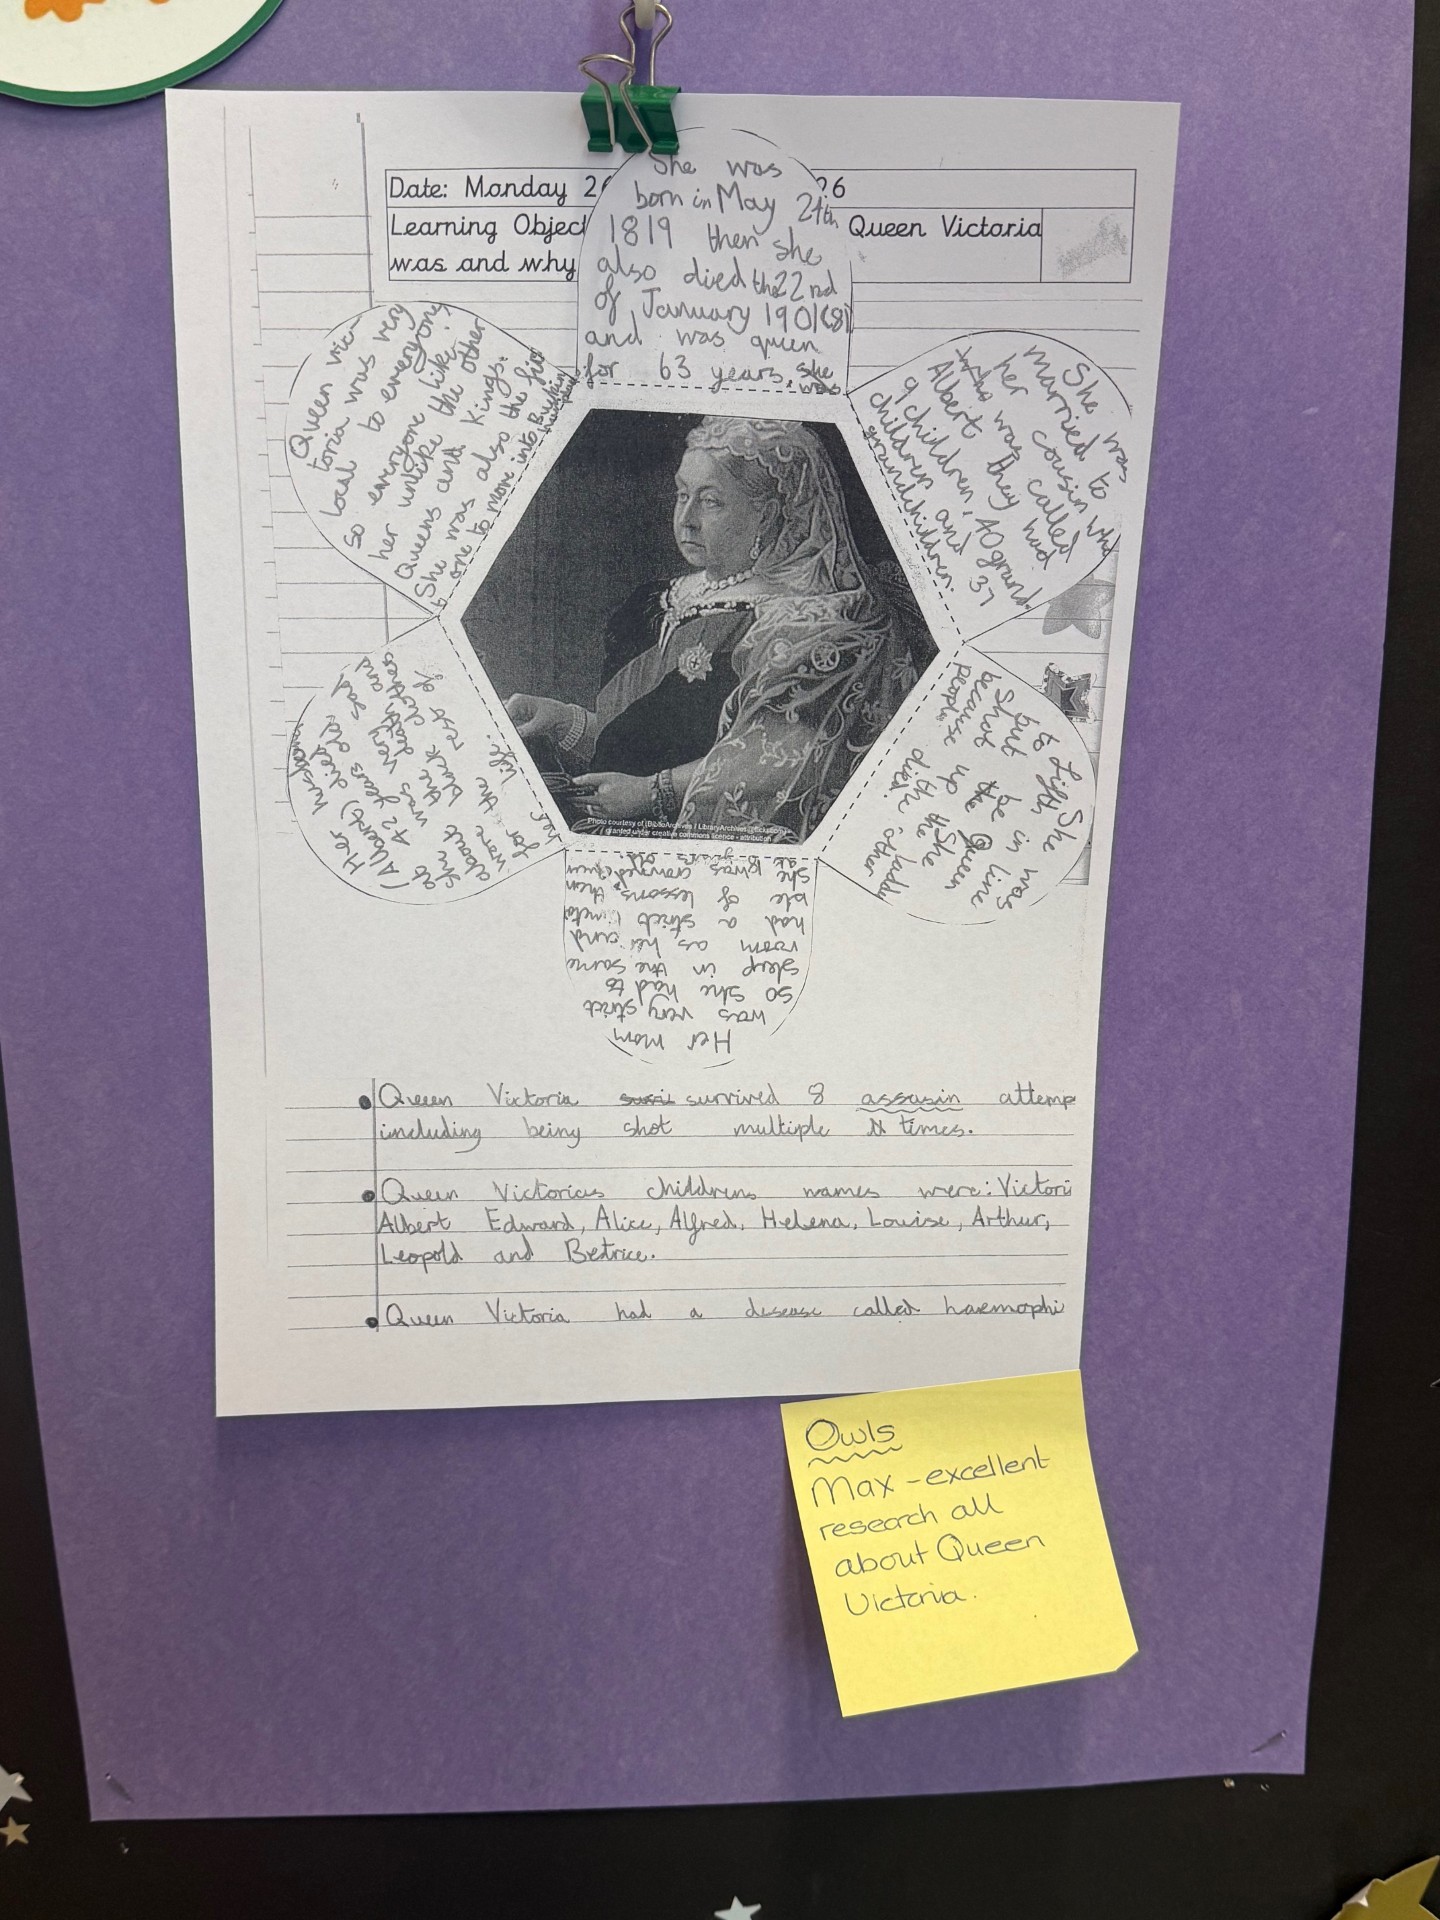 Date: Monday 26
26
Learning Object
Queen Victoria
was and why
She was
born in May 24th
1819 then she
also died the 22nd
of January 1901(81)
and was queen
for 63 years. she
was
She was
married to
her cousin who
who was called
Albert they had
9 children, 40 grand-
children and 37
grandchildren.
She was
to Fifth in line
but be the Queen
Shot up She
because the
people died. the other
Her mom
was very strict
so she had to
sleep in the same
room as her and
had a strict
ble of lessons, then
she was crowned queen
at 18 years old.
Her husband
(Albert) died at
42 years old and
she was very sad
about the death and
wore black clothes
for the rest of
her life.
Queen vic-
toria was very
local to everyone
so everyone like
her unlike the other
Queens and Kings.
She was also the first
one to move into
Queen Victoria survived 8 assasin attemp
including being shot multiple times.
Queen Victorias childrens names were: Victori
Albert Edward, Alice, Alfred, Helena, Louise, Arthur,
Leopold and Betrice.
Queen Victoria had a desease called haemophi
Photo courtesy of (BiblioArchives / LibraryArchives @flickr.com)
/ granted under creative commons licence - attribution
Owls
Max - excellent
research all
about Queen
Victoria.